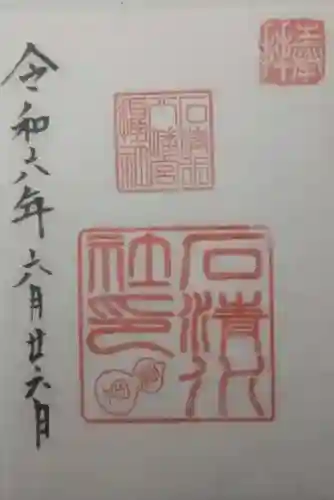 奉拝
石清水
八幡宮
石清水
社印
令和六年六月廿六日